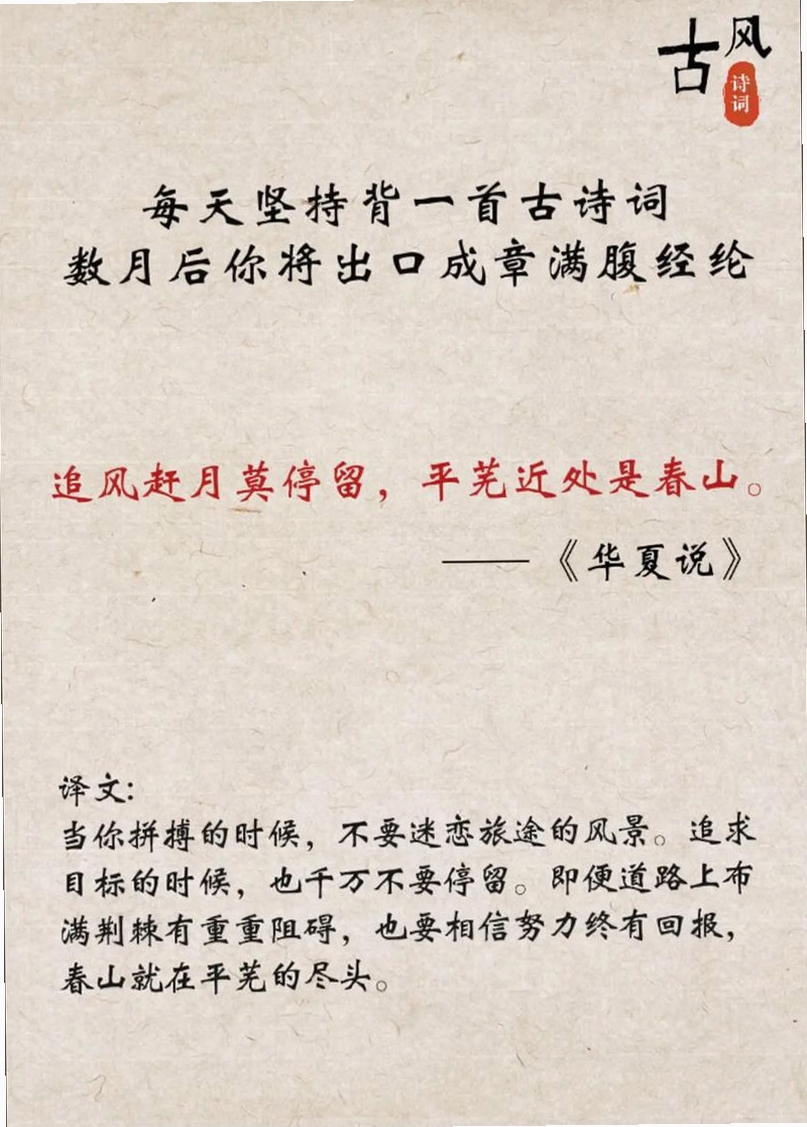 古风
诗词
每天坚持背一首古诗词
数月后你将出口成章满腹经纶
追风赶月莫停留，平芜近处是春山。
——《华夏说》
译文：
当你拼搏的时候，不要迷恋旅途的风景。追求
目标的时候，也千万不要停留。即便道路上布
满荆棘有重重阻碍，也要相信努力终有回报，
春山就在平芜的尽头。